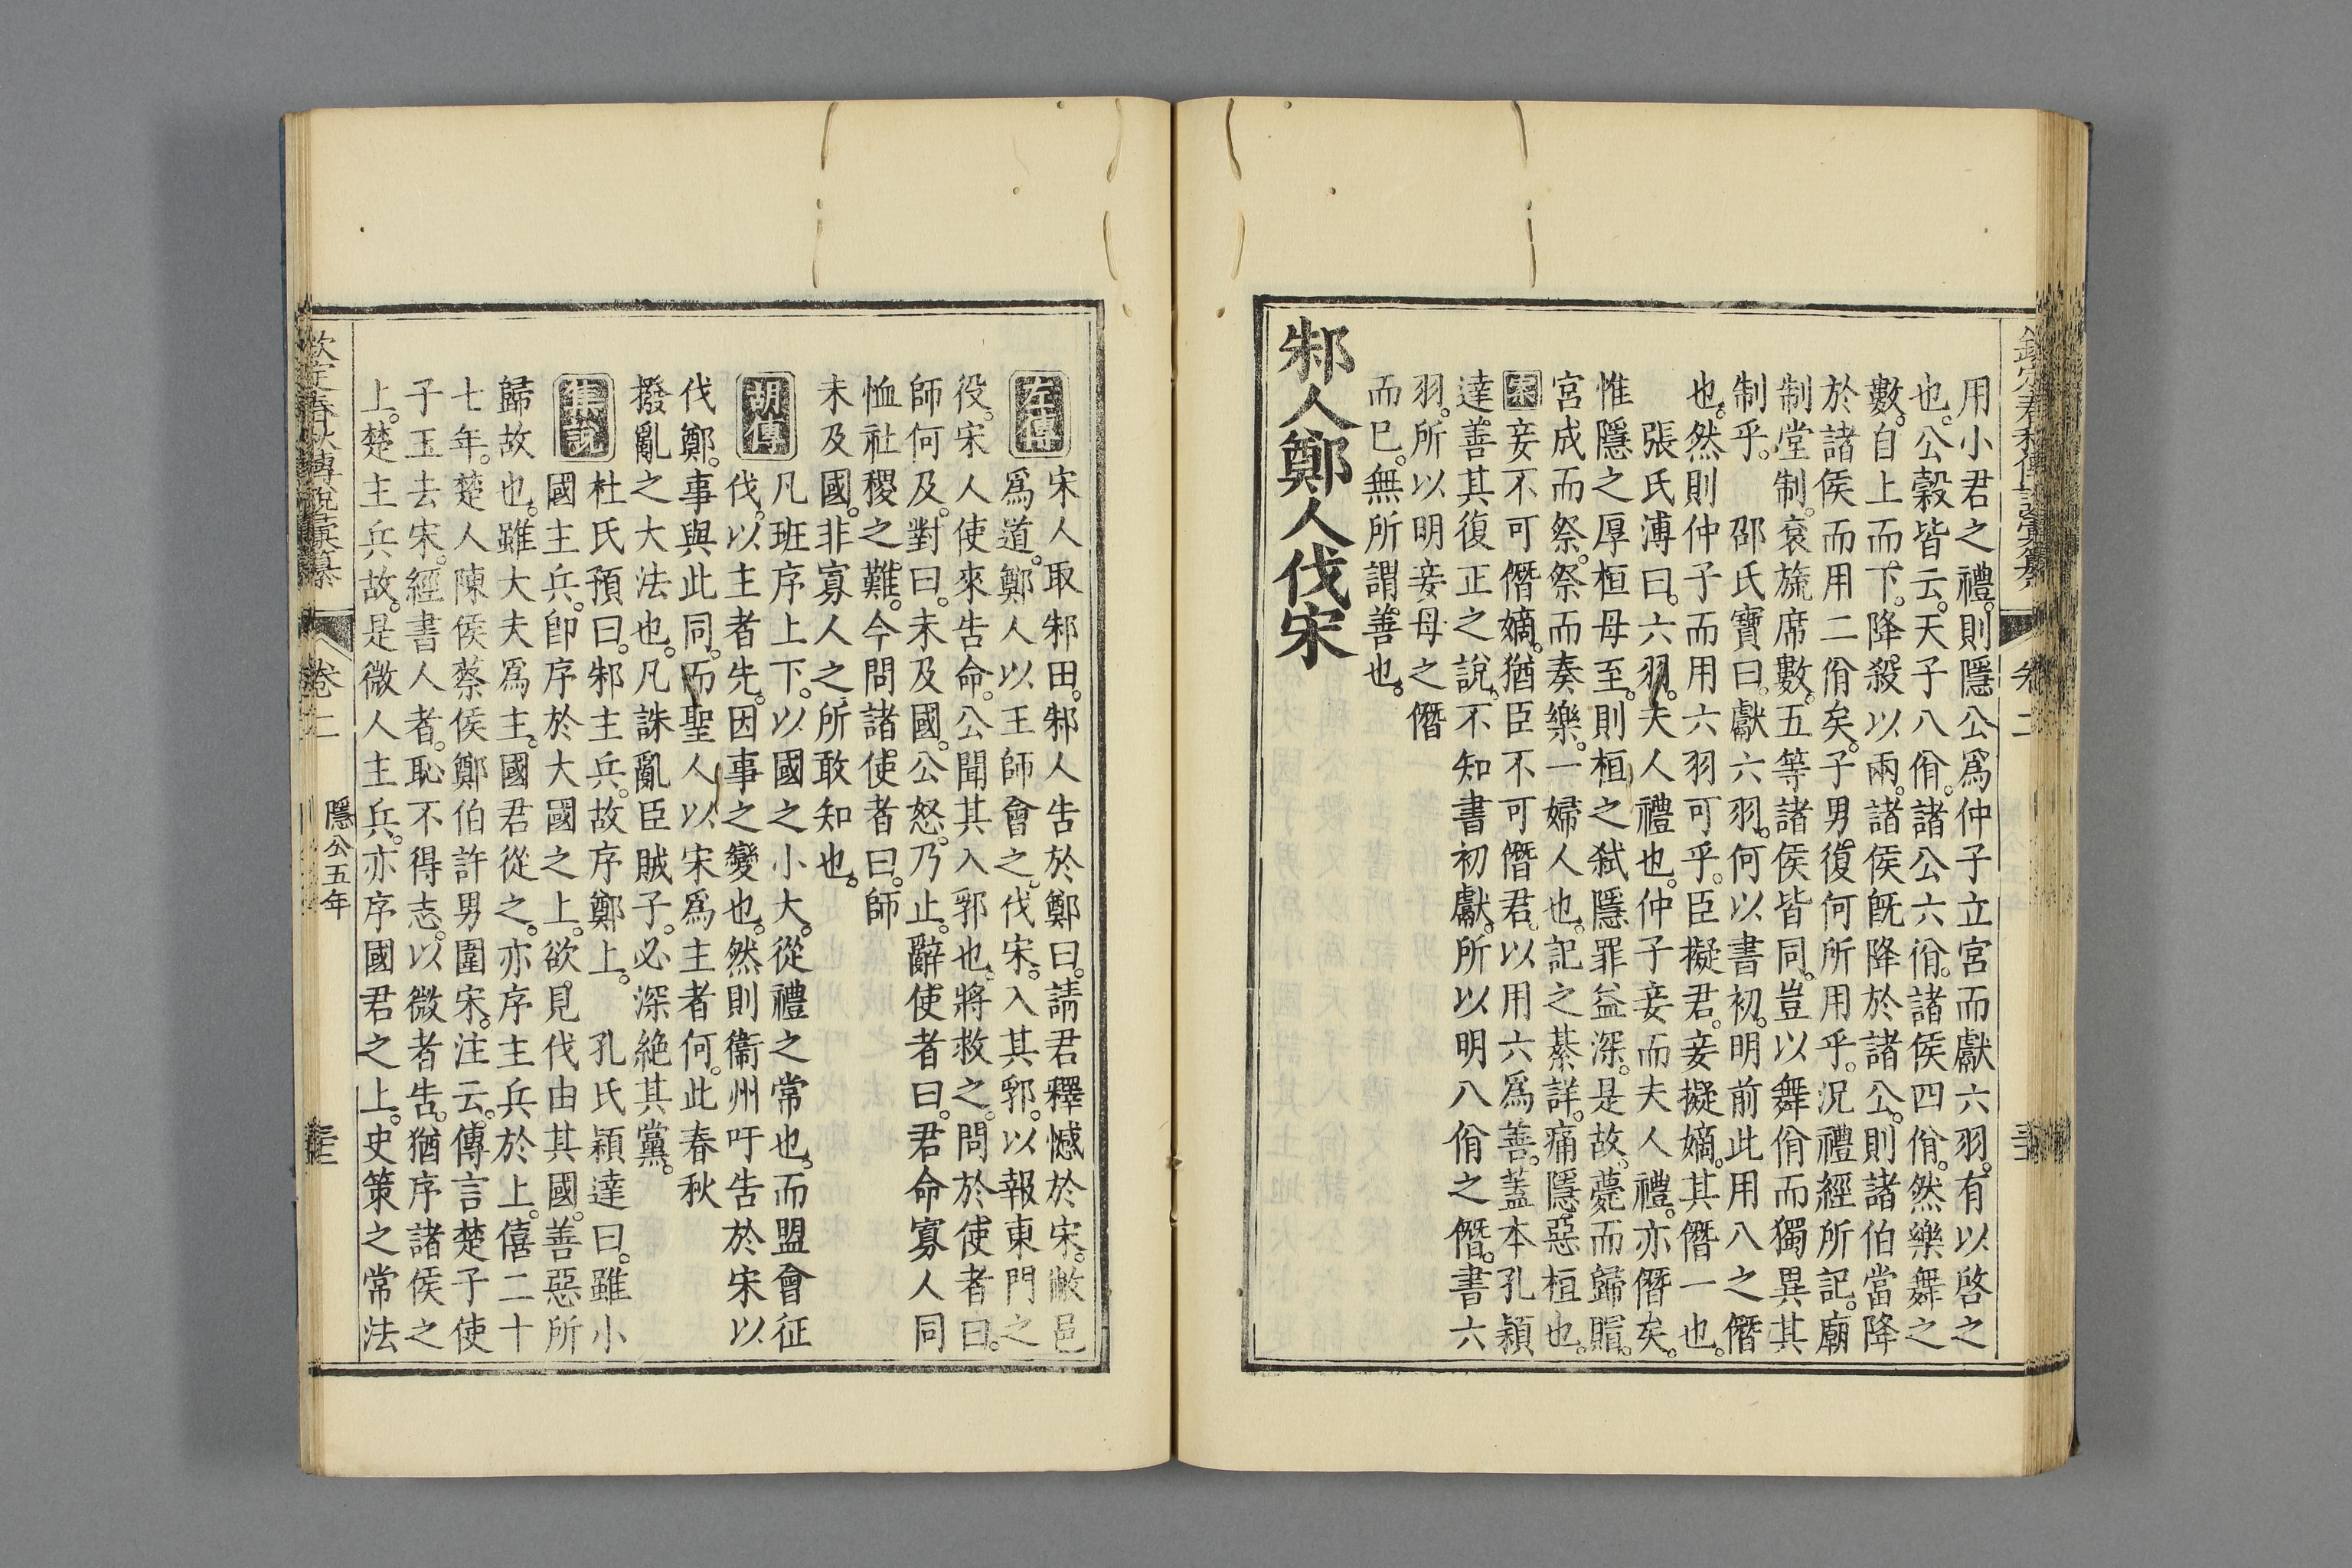 用小君之禮。則隱公爲仲子立宮而獻六羽。有以啓之
也。公穀皆云。天子八佾。諸公六佾。諸侯四佾。然樂舞之
數。自上而下。降殺以兩。諸侯旣降於諸公。則諸伯當降
於諸侯而用二佾矣。子男復何所用乎。況禮經所記。廟
制堂制。袞旒席數。五等諸侯皆同。豈以舞佾而獨異其
制乎。 邵氏寶曰。獻六羽。何以書初。明前此用八之僭
也。然則仲子而用六羽可乎。臣擬君。妾擬嫡。其僭一也。
張氏溥曰。六羽。夫人禮也。仲子妾而夫人禮。亦僭矣。
惟隱之厚桓母至。則桓之弑隱罪益深。是故薨而歸賵。
宮成而祭。祭而奏樂。一婦人也。記之綦詳。痛隱。惡桓也。
案 妾不可僭嫡。猶臣不可僭君。以用六爲善。蓋本孔穎
達善其復正之說。不知書初獻。所以明八佾之僭。書六
羽。所以明妾母之僭
而已。無所謂善也。
邾人鄭人伐宋
左傳 宋人取邾田。邾人告於鄭曰。請君釋憾於宋。敝邑
爲道。鄭人以王師會之。伐宋。入其郛。以報東門之
役。宋人使來告命。公聞其入郛也。將救之。問於使者曰。
師何及。對曰。未及國。公怒。乃止。辭使者曰。君命寡人同
恤社稷之難。今問諸使者曰。師
未及國。非寡人之所敢知也。
胡傳 凡班序上下。以國之小大。從禮之常也。而盟會征
伐。以主者先。因事之變也。然則衞州吁告於宋以
伐鄭。事與此同。而聖人以宋爲主者何。此春秋
撥亂之大法也。凡誅亂臣賊子。必深絶其黨。
集說 杜氏預曰。邾主兵。故序鄭上。 孔氏穎達曰。雖小
國主兵。卽序於大國之上。欲見伐由其國。善惡所
歸故也。雖大夫爲主。國君從之。亦序主兵於上。僖二十
七年。楚人陳侯蔡侯鄭伯許男圍宋。注云。傳言楚子使
子玉去宋。經書人者。恥不得志。以微者告。猶序諸侯之
上。楚主兵故。是微人主兵。亦序國君之上。史策之常法
欽定春秋傳說彙纂 卷二 隱公五年